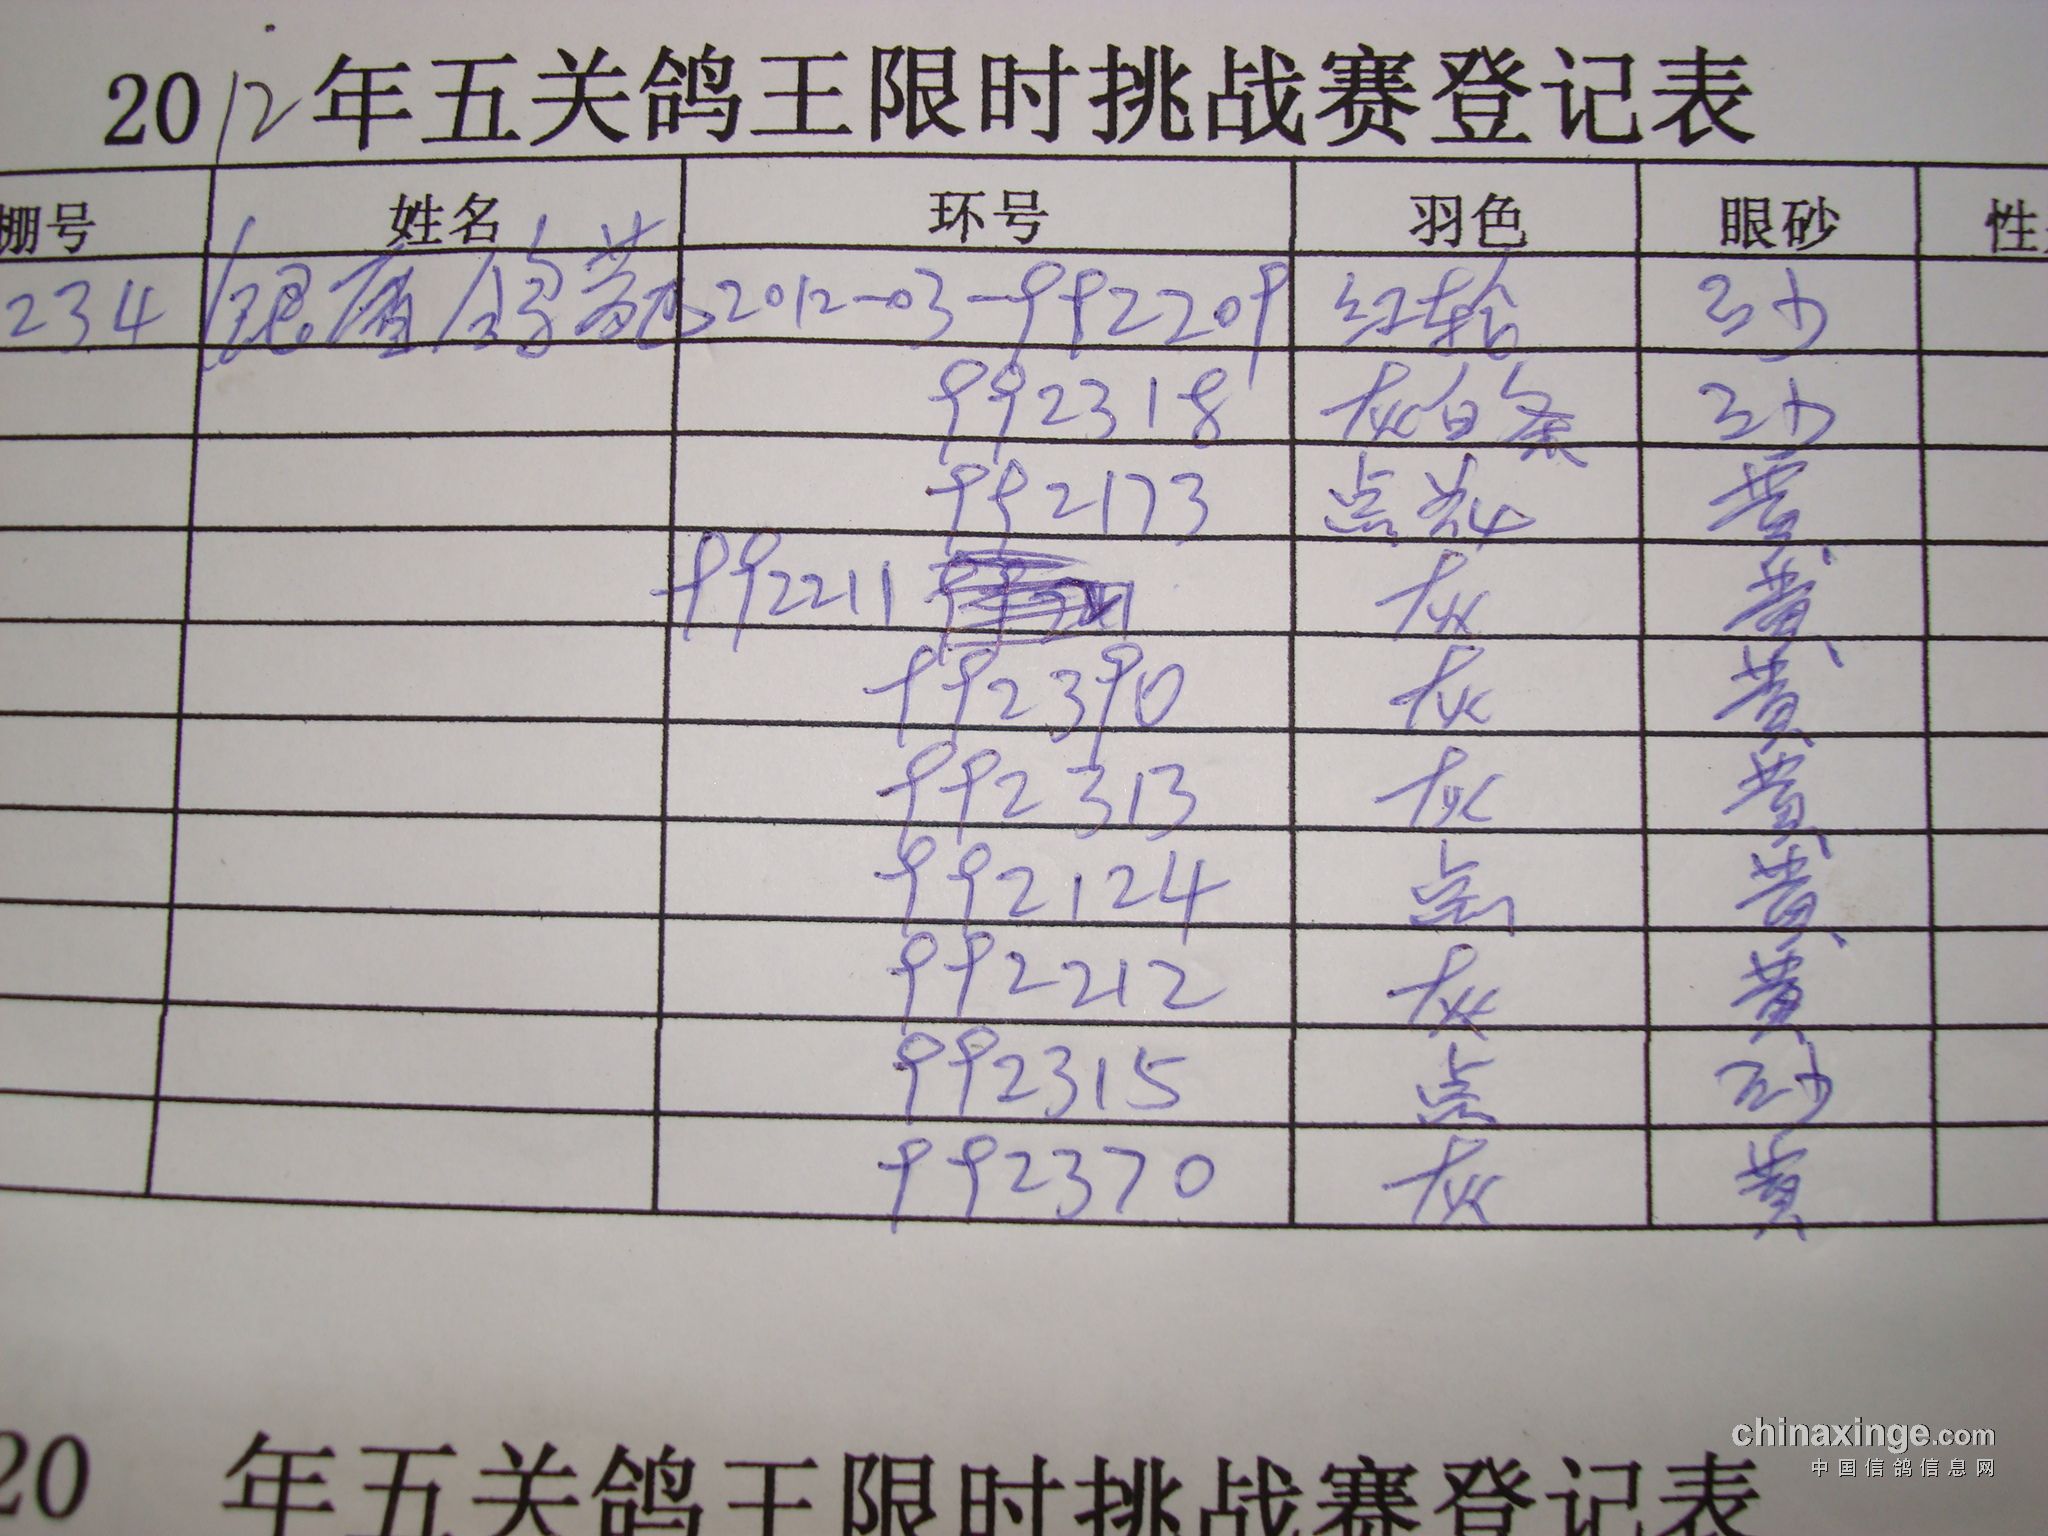 2012年五关鸽王限时挑战赛登记表
棚号 姓名 环号 羽色 眼砂 性
234 2012-03-992209 红轮 砂
992318 灰白条 砂
992173 点花 黄
992211 灰 黄
992390 灰 黄
992313 灰 黄
992124 点 黄
992212 灰 黄
992315 点 砂
992370 灰 黄
chinaxinge.com
中国信鸽信息网
20 年五关鸽王限时挑战赛登记表